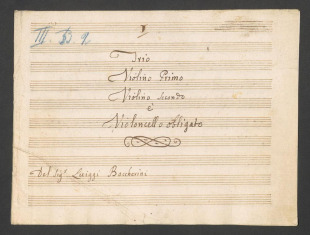 1
III. 50. 9.
Trio
Violino Primo
Violino Secondo
è
Violoncello obligato
Del Sigr. Luiggi Bocherini